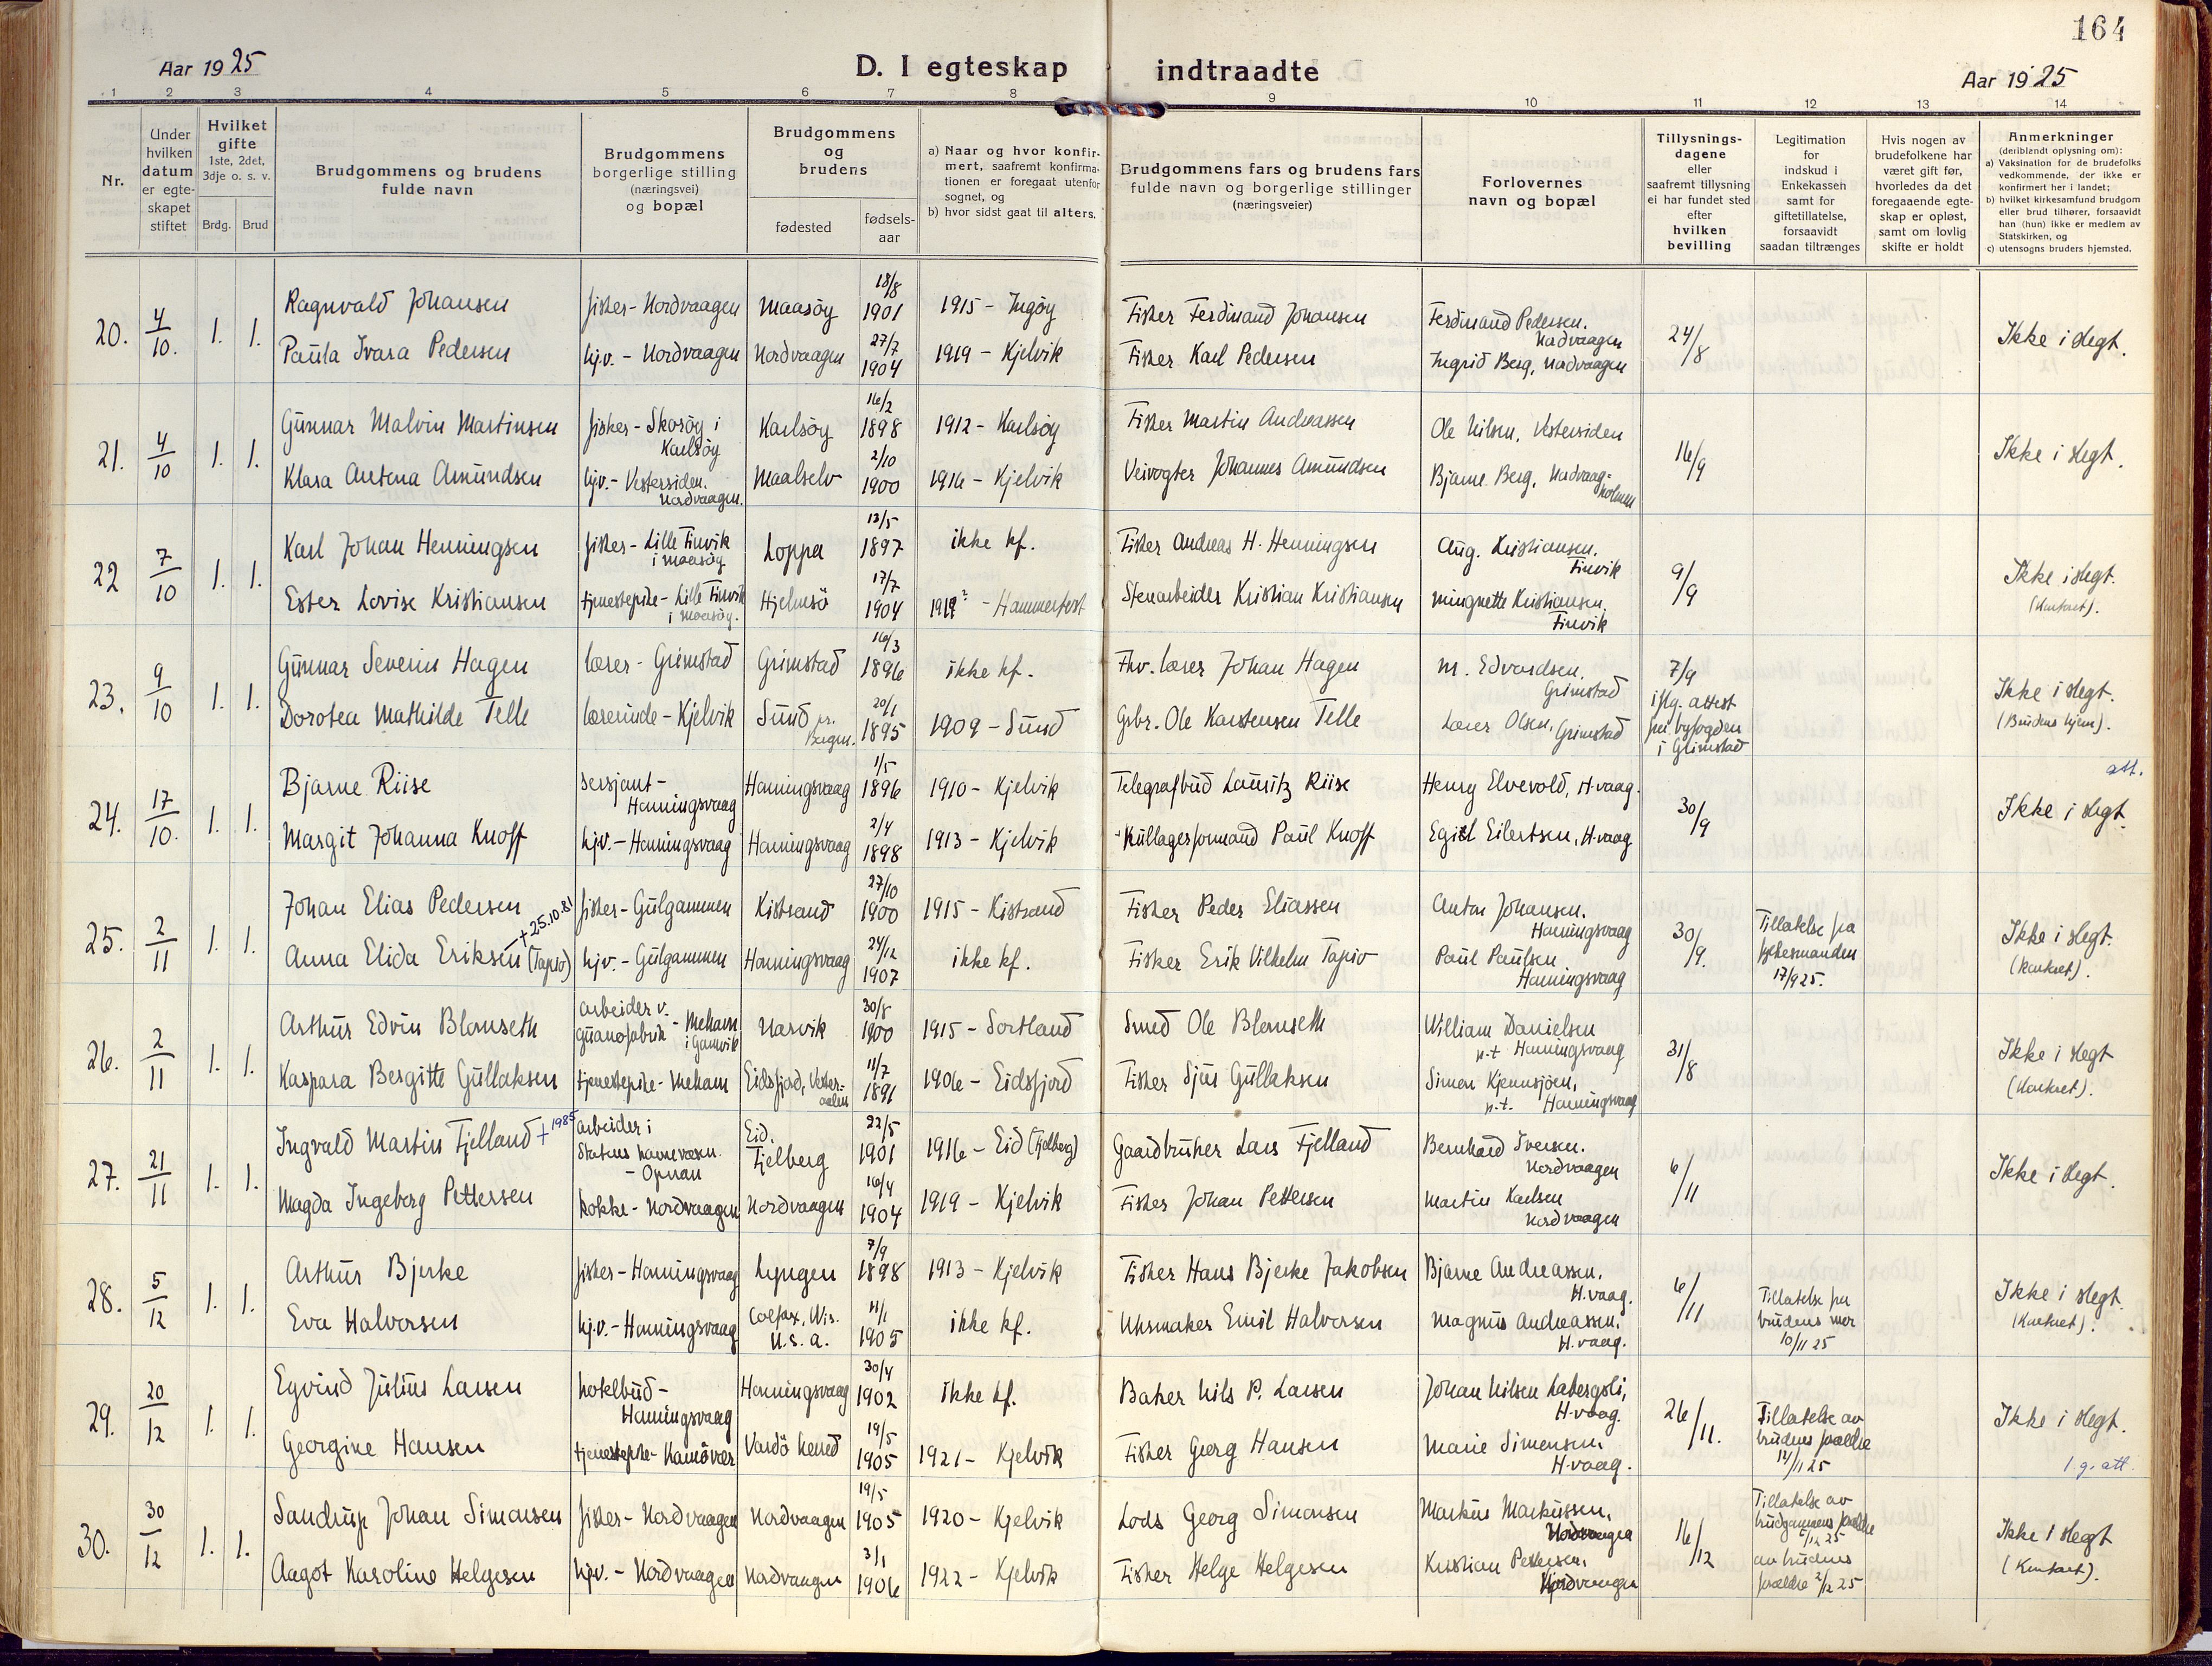 164
Aar 1925
D. I egteskap indtraadte
Aar 1925
1 2 3 4 5 6 7 8 9 10 11 12 13 14
Nr.
Under hvilken datum er egteskapet stiftet
Hvilket gifte 1ste, 2det, 3dje o. s. v.
Brdg. Brud
Brudgommens og brudens fulde navn
Brudgommens borgerlige stilling (næringsvei) og bopæl
Brudgommens og brudens
fødested
fødsels-aar
a) Naar og hvor konfirmert, saafremt konfirmationen er foregaat utenfor sognet, og
b) hvor sidst gaat til alters.
Brudgommens fars og brudens fars fulde navn og borgerlige stillinger (næringsveier)
Forlovernes navn og bopæl
Tillysningsdagene eller saafremt tillysning ei har fundet sted efter hvilken bevilling
Legitimation for indskud i Enkekassen samt for giftetillatelse, forsaavidt saadan tiltrænges
Hvis nogen av brudefolkene har været gift før, hvorledes da det foregaaende egteskap er opløst, samt om lovlig skifte er holdt
Anmerkninger (deriblandt oplysning om):
a) Vaksination for de brudefolks vedkommende, der ikke er konfirmert her i landet;
b) hvilket kirkesamfund brudgom eller brud tilhører, forsaavidt han (hun) ikke er medlem av Statskirken, og
c) utensogns bruders hjemsted.
20. 4/10. 1. 1.
Ragnvald Johansen fisker - Nordvaagen Maasöy 18/8 1901 1915 - Ingöy Fisker Ferdinand Johansen Ferdinand Pedersen. Nordvaagen 24/8 Ikke i slegt.
Paula Ivara Pedersen hjv. - Nordvaagen Nordvaagen 27/7 1904 1919 - Kjelvik Fisker Karl Pedersen Ingrid Berg, Nordvaagen
21. 4/10 1. 1.
Gunnar Malvin Martinsen fisker - Skoröy i Karlsöy Karlsöy 16/2 1898 1912 - Karlsöy Fisker Martin Andreassen Ole Nilsen, Vestersiden 16/9 Ikke i slegt.
Klara Antona Amundsen hjv. - Vestersiden. Nordvaagen. Maalselv 2/10 1900 1916 - Kjelvik Veivogter Johannes Amundsen Bjarne Berg, Nordvaagholmen
22 7/10 1. 1.
Karl Johan Henningsen fisker - Lille Finvik i Maasöy Loppa 13/5 1897 ikke kf. Fisker Andreas H. Henningsen Aug. Kristiansen. Finvik 9/9 Ikke i slegt. (Kautset).
Ester Lovise Kristiansen tjenestepike - Lille Finvik i Maasöy. Hjelmsö 17/7 1904 1919? - Hammerfest Stenarbeider Kristian Kristiansen Mingnette Kristiansen. Finvik
23. 9/10 1. 1.
Gunnar Severin Hagen lærer - Grimstad Grimstad 16/3 1896 ikke kf. Fhv. lærer Johan Hagen M. Edvardsen. Grimstad 7/9 iflg. attest fra byfogden i Grimstad Ikke i slegt. (Brudens hjem).
Dorotea Mathilde Telle lærerinde - Kjelvik Sund pr. Bergen. 20/1 1895 1909 - Sund Grbr. Ole Karstensen Telle Lærer Olsen, Grimstad
24. 17/10. 1. 1.
Bjarne Riise sersjant - Honningsvaag Honningsvaag 1/5 1896 1910 - Kjelvik Telegrafbud Lauritz Riise Henry Elvevold, H.vaag. 30/9 att. Ikke i slegt
Margit Johanna Knoff hjv. - Honningsvaag Honningsvaag 2/4 1898 1913 - Kjelvik Kullagerformand Paul Knoff Egil Eilertsen, H.vaag
25. 2/11 1. 1.
Johan Elias Pedersen fisker - Gulgammen Kistrand 27/10 1900 1915 - Kistrand Fisker Peder Eliassen Anton Johansen. Honningsvaag 30/9. Tillatelse fra fylkesmanden 17/9 25. Ikke i slegt. (Kontoret).
Anna Elida Eriksen (Tapio) + 25.10.81 hjv. - Gulgammen Honningsvaag 24/12 1907 ikke kf. Fisker Erik Vilhelm Tapio Paul Paulsen Honningsvaag
26. 2/11 1. 1.
Arthur Edvin Blomseth arbeider v. guanofabrik - Mehamn i Gamvik Narvik 30/8 1900 1915 - Sortland Smed Ole Blomseth William Danielsen p.t Honningsvaag 31/8 Ikke i slegt (Kontoret).
Kaspara Bergitte Gullaksen tjenestepike - Mehamn Eidsfjord, Vesteraalen 11/7 1891 1906 - Eidsfjord Fisker Sjus Gullaksen Simon Kjennsjöen, p.t. Honningsvaag
27. 21/11 1. 1.
Ingvald Martin Fjelland + 1985 arbeider i Statens havnevæsen. - Opnan Eid. Fjelberg 22/5 1901 1916 - Eid (Fjelberg) Gaardbruker Lars Fjelland Bernhard Iversen. Nordvaagen 6/11 Ikke i slegt.
Magda Ingeborg Pettersen kokke - Nordvaagen Nordvaagen 16/4 1904 1919 - Kjelvik Fisker Johan Pettersen Martin Karlsen Nordvaagen
28. 5/12 1. 1.
Arthur Bjerke fisker - Honningsvaag Lyngen 7/9 1898 1913 - Kjelvik Fisker Hans Bjerke Jakobsen Bjarne Andreassen. H.vaag. 6/11 Tillatelse fra brudens mor 10/11 25 Ikke i slegt. (Kontoret).
Eva Halvorsen hjv. - Honningsvaag Colfax, Wis. U.S.A. 11/1 1905 ikke kf. Uhrmaker Emil Halvorsen Magnus Andreassen, H.vaag.
29. 20/12 1. 1.
Eyvind Julius Larsen hotelbud - Honningsvaag Honningsvaag 30/4 1902 ikke kf. Baker Nils P. Larsen Johan Nilsen Labergsli, H.vaag. 26/11. Tillatelse av brudens forældre 12/11 25 Ikke i slegt. 1 g. att.
Georgine Hansen tjenestepike - Kamövær Vardö herred 19/5 1905 1921 - Kjelvik Fisker Georg Hansen Marie Simonsen. H.vaag.
30. 30/12 1. 1.
Sandrup Johan Simonsen fisker - Nordvaagen Nordvaagen 19/5 1905 1920 - Kjelvik Lods Georg Simonsen Markus Markussen, Nordvaagen 16/12 Tillatelse av brudgommens forældre 5/12 25 Ikke i slegt (Kontoret).
Aagot Karoline Helgesen hjv. - Nordvaagen Nordvaagen 3/1 1906 1922 - Kjelvik Fisker Helge Helgesen Kristian Pettersen. Nordvaagen av brudens forældre 2/12 25